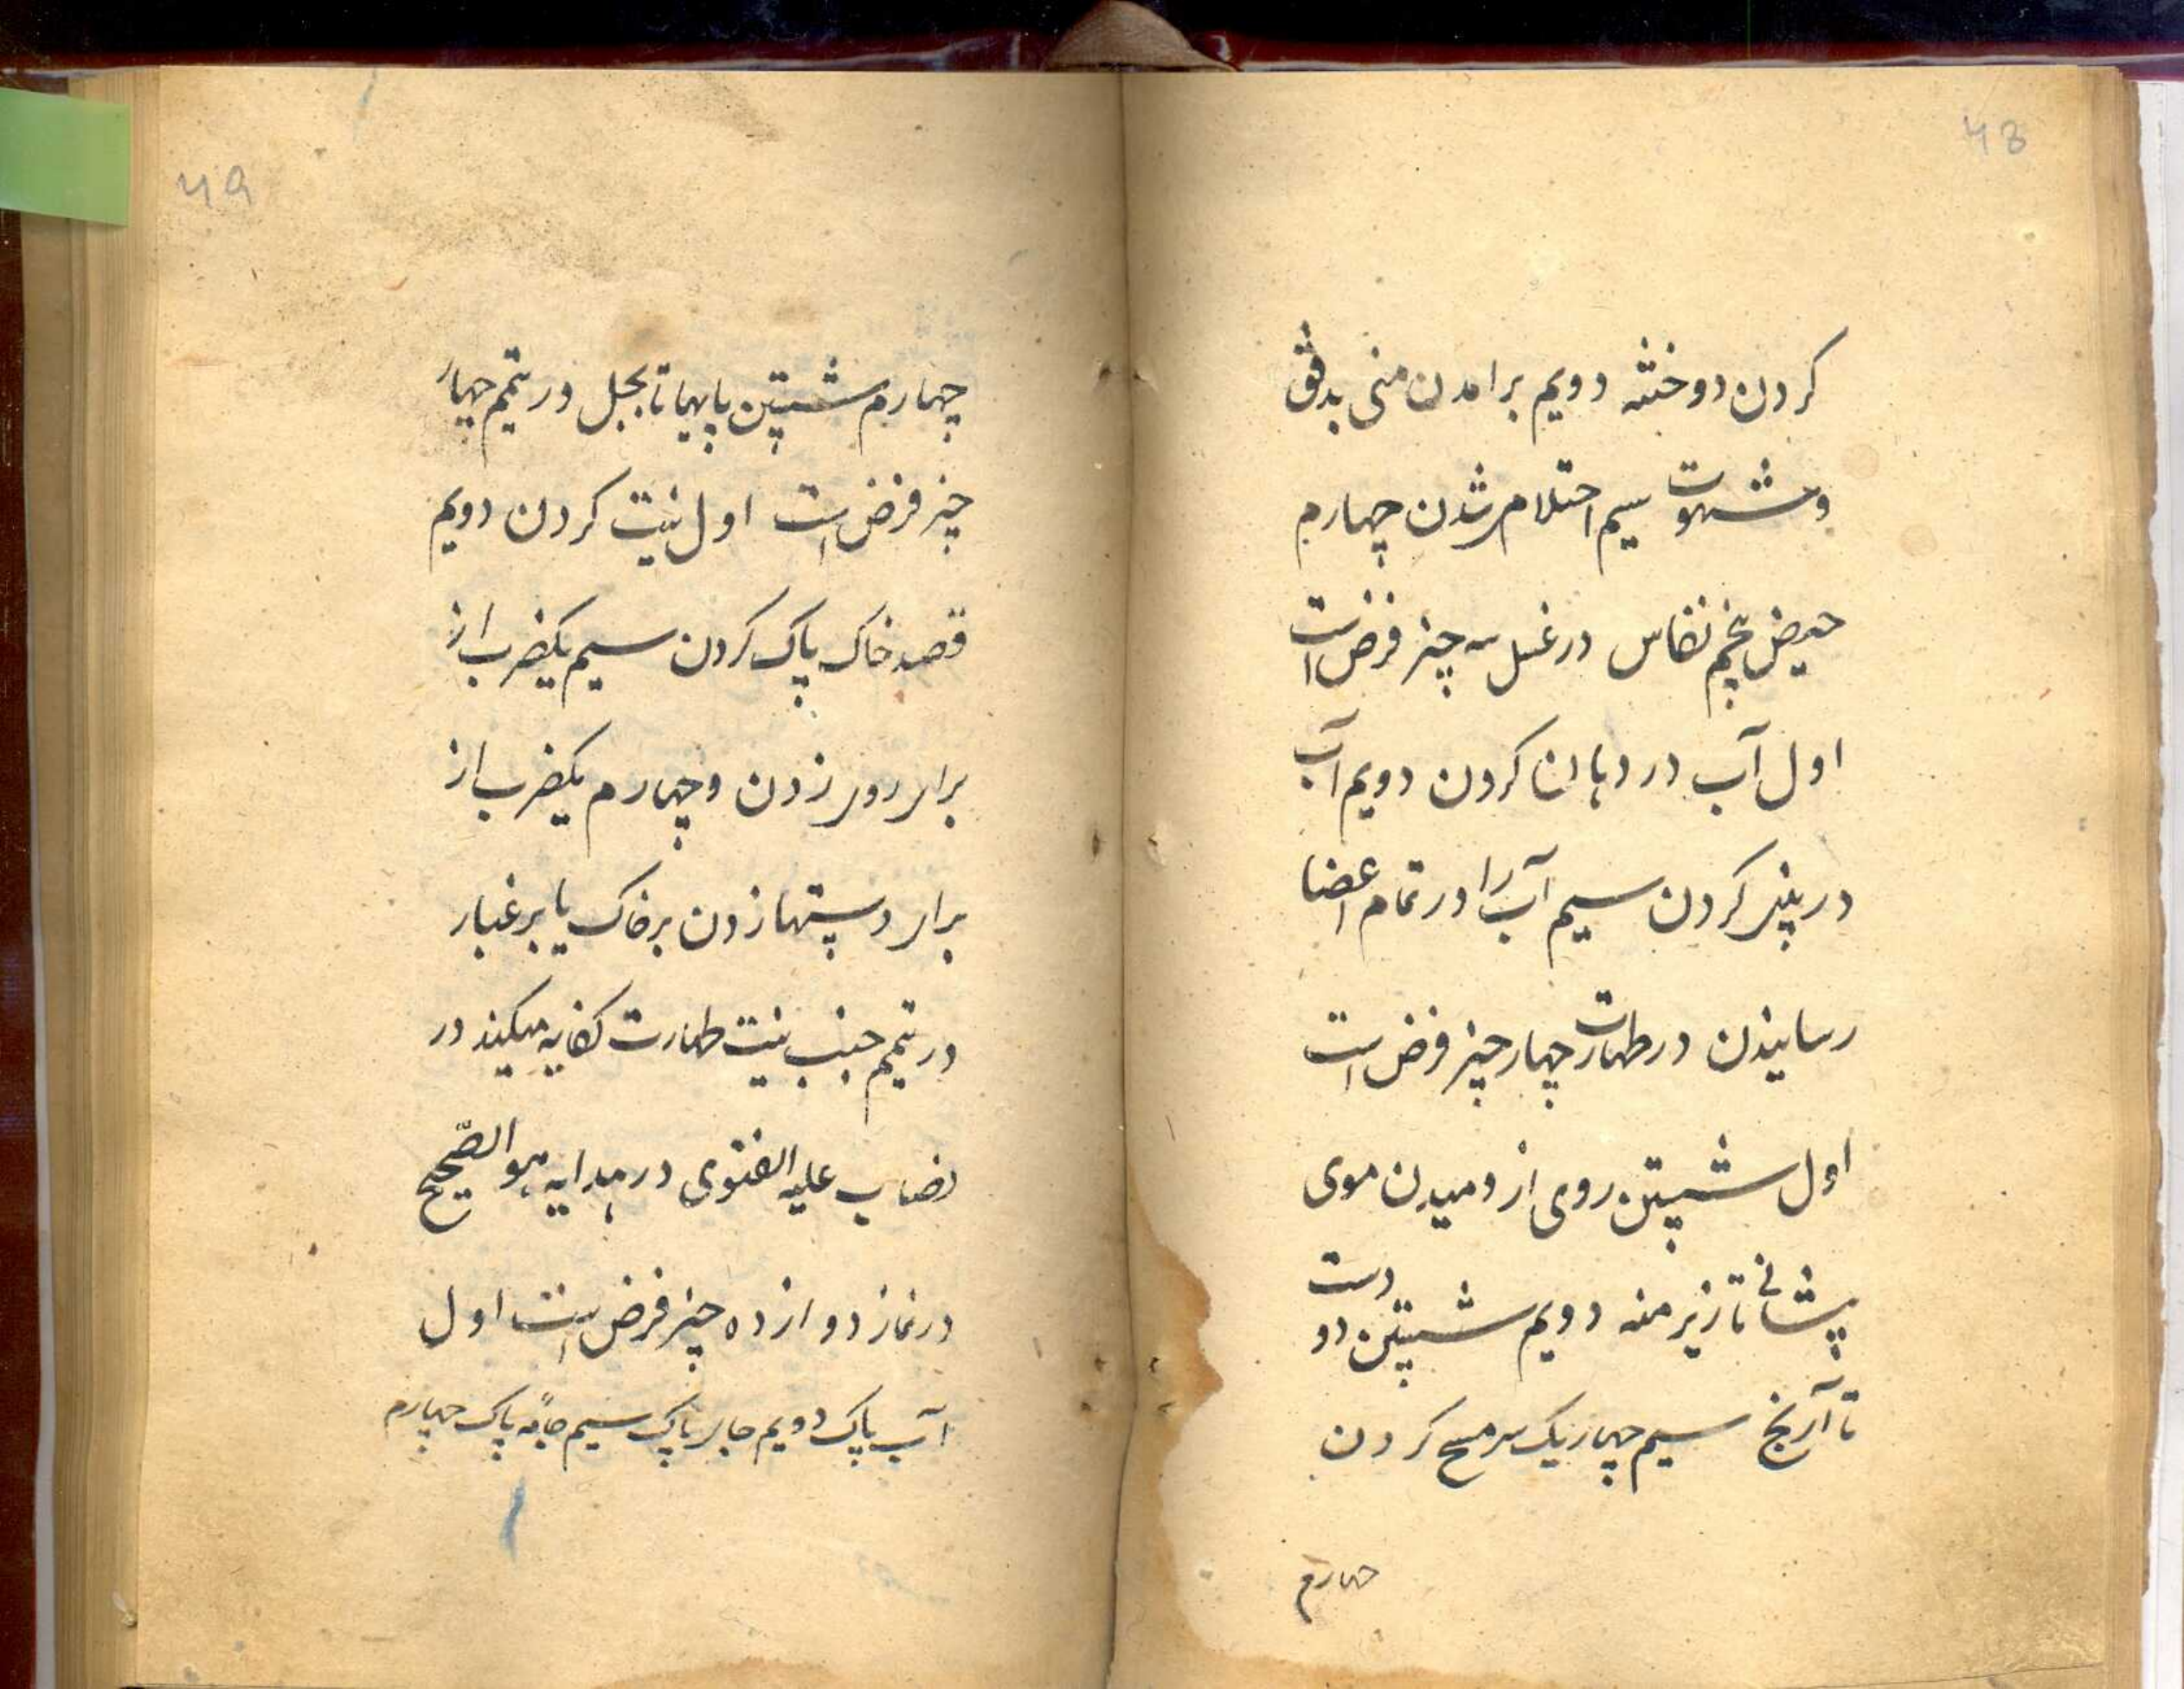 48
کردن دو ختنه دویم برامدن منی بدفق
و شهوت سیم احتلام شدن چهارم
حیض پنجم نفاس در غسل سه چیز فرض است
اول آب در دهان کردن دویم آب
در بینی کردن سیم آب را در تمام اعضا
رسانیدن در طهارت چهار چیز فرض است
اول شستن روی از دمیدن موی
پیشانی تا زیر منه دویم شستن دو دست
تا آرنج سیم چهار یک سر مسح کردن
چهارم
49
چهارم شستن پایها تا بجل در تیمم چهار
چیز فرض است اول نیت کردن دویم
قصد خاک پاک کردن سیم یکضرب از
برای روی زدن و چهارم یکضرب از
برای دستها زدن بر خاک یا بر غبار
در تیمم جنب نیت طهارت کفایه میکند در
نصاب علیه الفتوی در هدایه هو الصحیح
در نماز دوازده چیز فرض است اول
آب پاک دویم جای پاک سیم جامه پاک چهارم